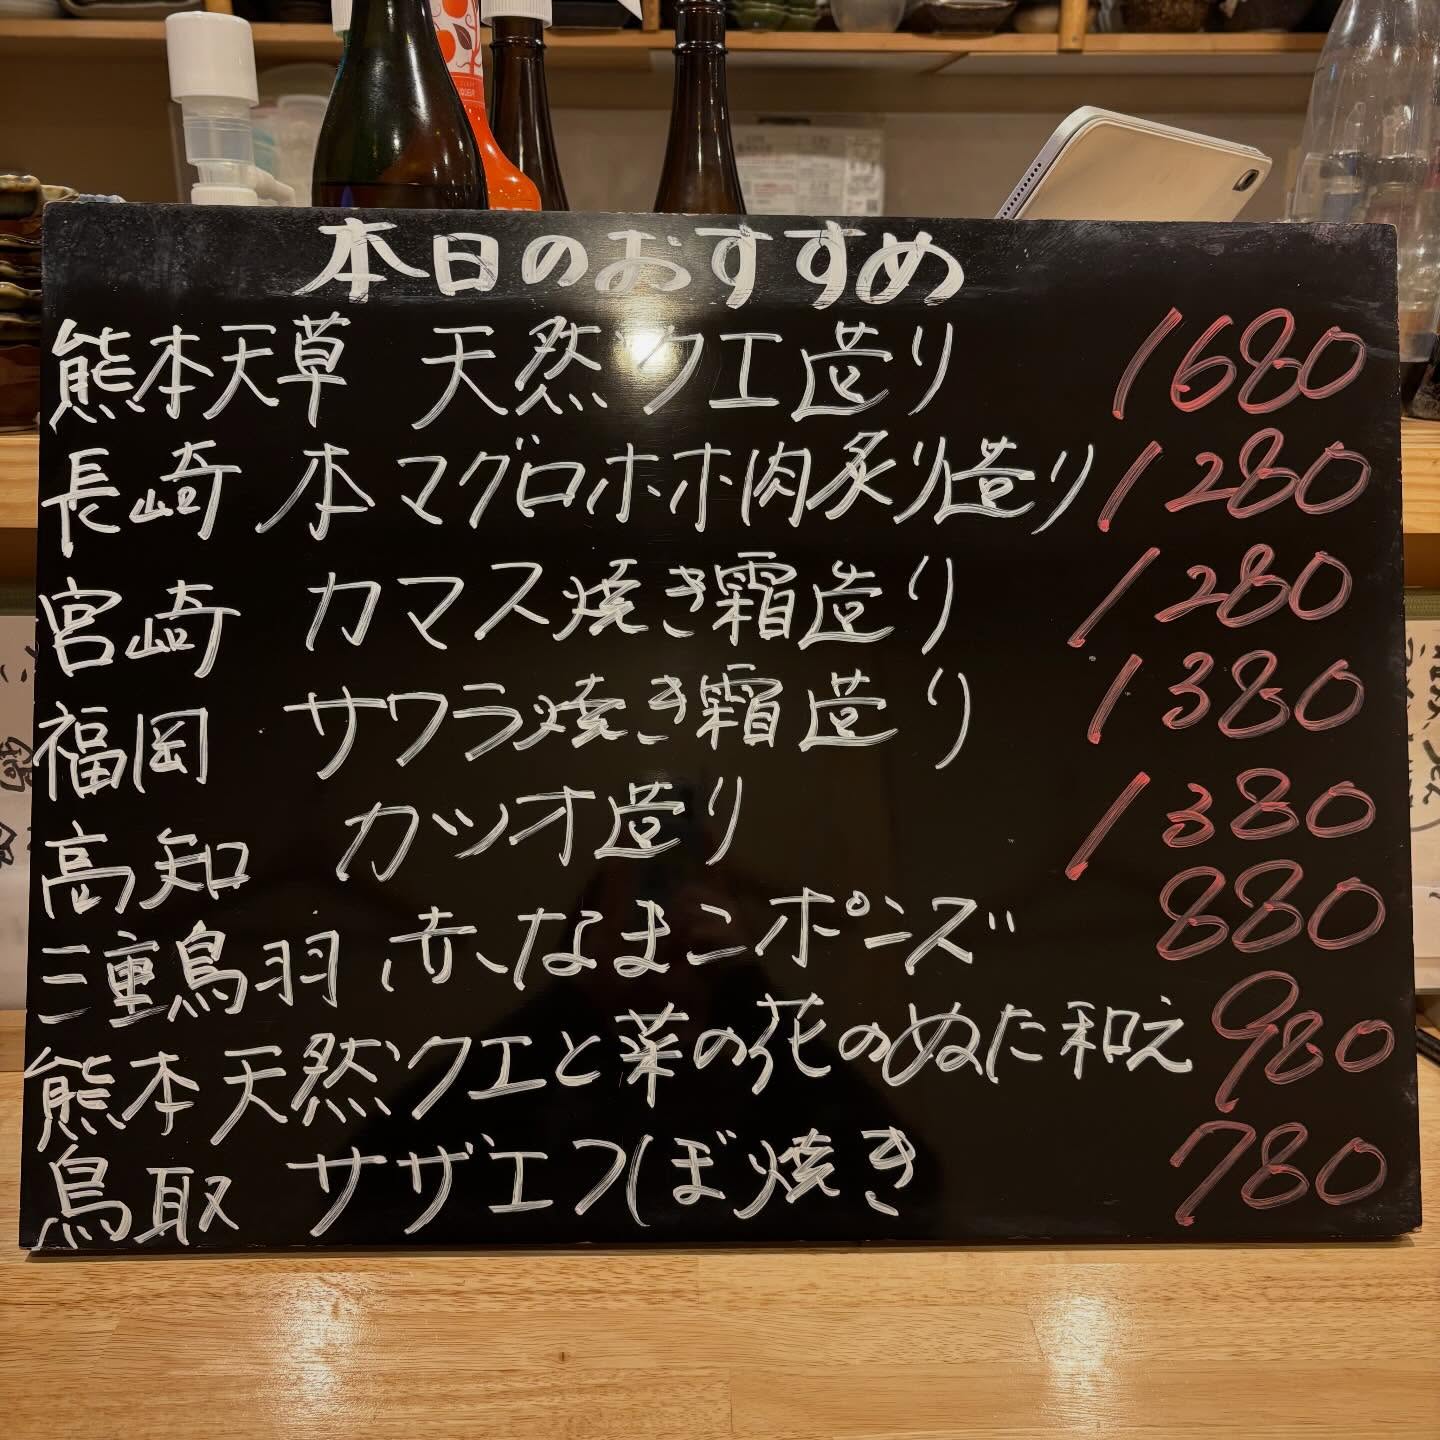 本日のおすすめ
熊本天草 天然クエ造り 1680
長崎 本マグロホホ肉炙り造り 1280
宮崎 カマス焼き霜造り 1280
福岡 サワラ焼き霜造り 1380
高知 カツオ造り 1380
三重鳥羽 赤なまこポンズ 880
熊本天然クエと菜の花のぬた和え 980
鳥取 サザエつぼ焼き 780